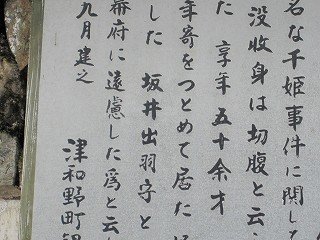 名な千姫事件に関し
没收身は切腹と云
た 享年五十余才
年寄をつとめて居た
した 坂井出羽守と
幕府に遠慮した為と云
九月建之
津和野町